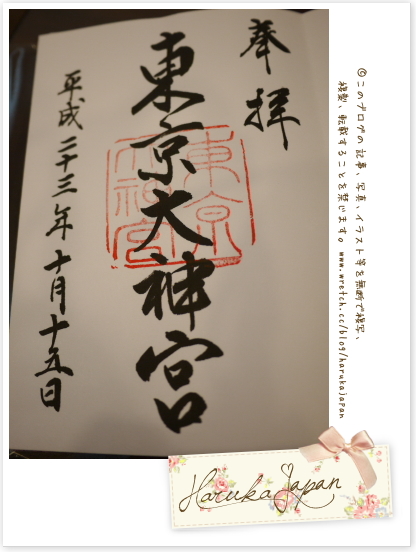 奉拝
東京大神宮
東京
大神宮
平成二十三年十月十五日
©このブログの記事、写真、イラスト等を無断で複写、
複製、転載することを禁じます。www.wretch.cc/blog/harukajapan
HarukaJapan